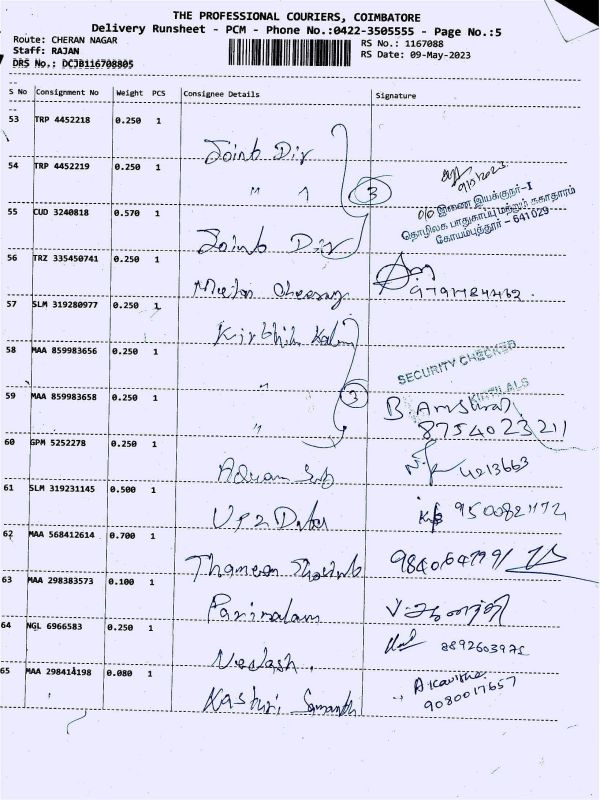 THE PROFESSIONAL COURIERS, COIMBATORE
Delivery Runsheet - PCM - Phone No.:0422-3505555 - Page No.:5
Route: CHERAN NAGAR
RS No.: 1167088
Staff: RAJAN
RS Date: 09-May-2023
DRS No.: DCJB116708805
S No Consignment No Weight PCS Consignee Details Signature
53 TRP 4452218 0.250 1
Joint Dir
54 TRP 4452219 0.250 1
" "
3
O/O இணை இயக்குநர்-I
தொழிலக பாதுகாப்பு மற்றும் சுகாதாரம்
கோயம்புத்தூர் - 641 029
55 CUD 3240818 0.570 1
Joint Dir
56 TRZ 335450741 0.250 1
57 SLM 319280977 0.250 1
58 MAA 859983656 0.250 1
"
SECURITY CHECKED
KIRTILALS
59 MAA 859983658 0.250 1
"
3
8754023211
60 GPM 5252278 0.250 1
4213663
61 SLM 319231145 0.500 1
9500821172
62 MAA 568412614 0.700 1
63 MAA 298383573 0.100 1
Parimalam
64 NGL 6966583 0.250 1
8892603975
65 MAA 298414198 0.080 1
9080017657